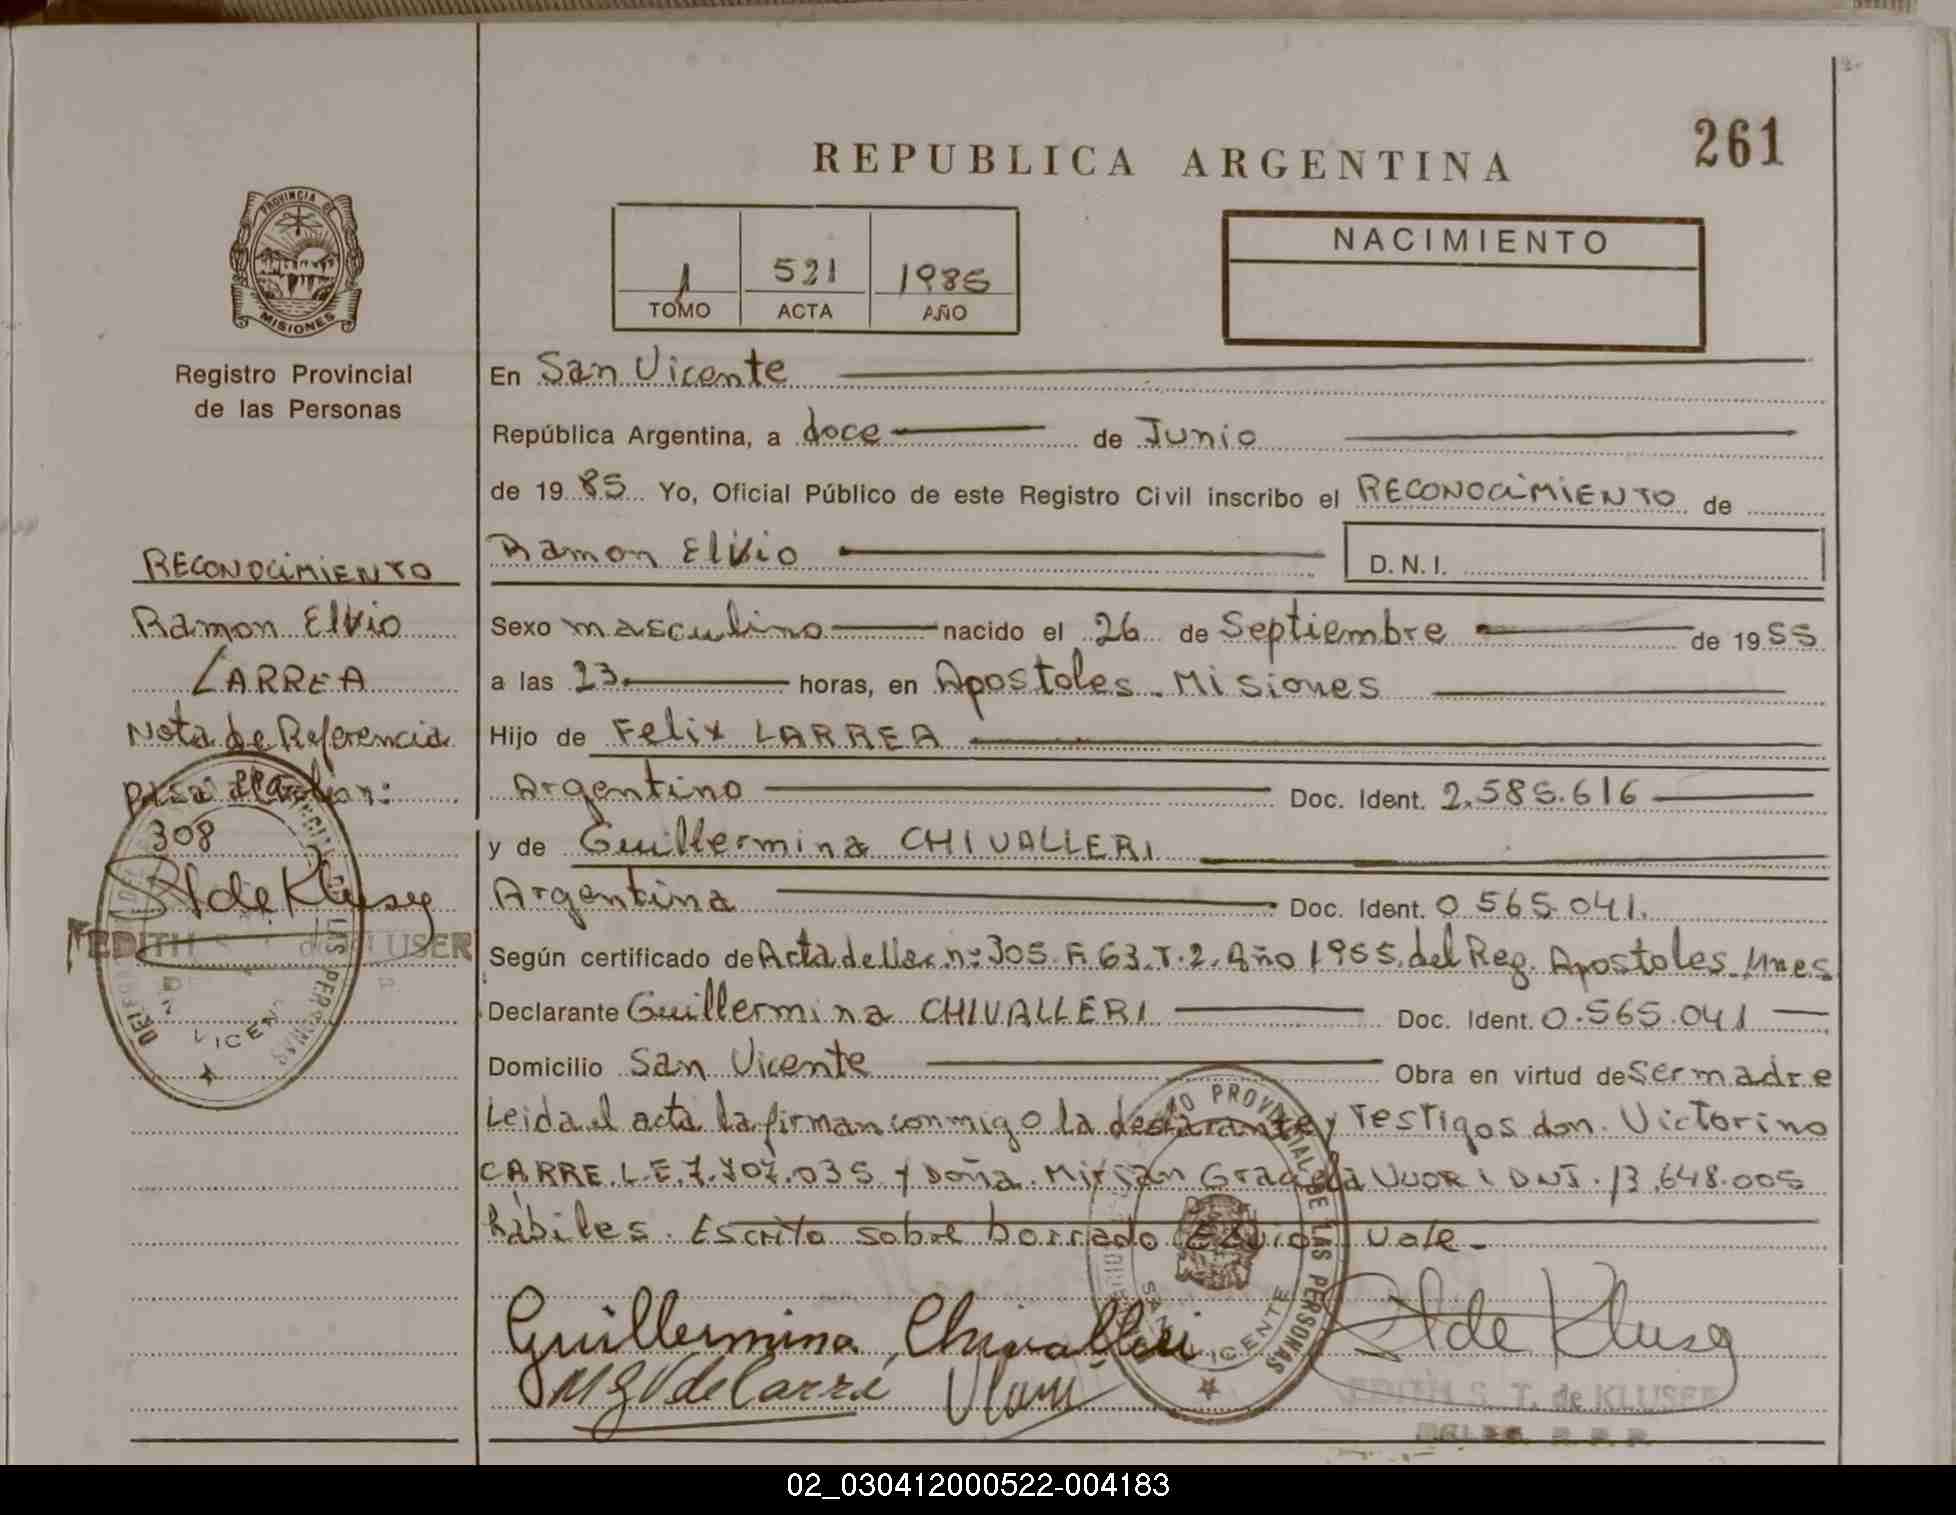 261
REPUBLICA ARGENTINA
PROVINCIA DE
MISIONES
Registro Provincial
de las Personas
1 521 1985
TOMO ACTA AÑO
NACIMIENTO
En San Vicente
República Argentina, a doce de Junio
de 19 85 Yo, Oficial Público de este Registro Civil inscribo el RECONOCIMIENTO de
Ramon Elvio
D.N.I.
Sexo masculino nacido el 26 de Septiembre de 19 55
a las 23 horas, en Apostoles. Misiones
Hijo de Felix LARREA
Argentino Doc. Ident. 2.585.616
y de Guillermina CHIVALLERI
Argentina Doc. Ident. 0 565 041.
Según certificado de Acta de Nac. nº 305. F. 63. T. 2. Año 1955. del Reg. Apostoles. Mnes
Declarante Guillermina CHIVALLERI Doc. Ident. 0.565.041
Domicilio San Vicente Obra en virtud de ser madre
Leida el acta la firman conmigo la declarante y Testigos don. Victorino
CARRE. L.E. 7.707.035 y Doña. Mirian Graciela VUORI DNI. 13.648.005
hábiles. Escrito sobre borrado Elvio Vale.
Guillermina Chivalleri
MGV de Carré
St de Kluser
EDITH S. T. de KLUSER
DELEG. R. P. P.
PROVINCIAL DE LAS PERSONAS
SAN VICENTE
RECONOCIMIENTO
Ramon Elvio
LARREA
Nota de Referencia
pasa al folio:
308
St de Kluser
EDITH S. de KLUSER
LAS PERSONAS
VICEN
02_030412000522-004183